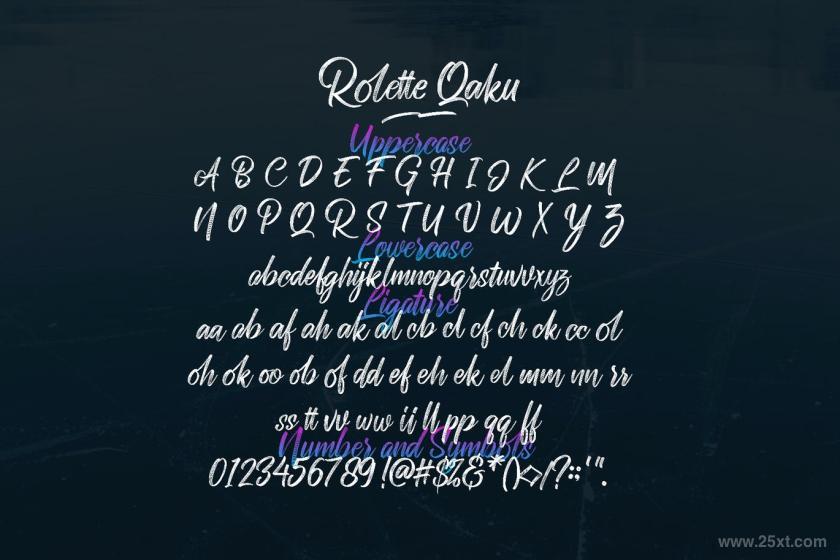 Rolette Qaku
Uppercase
A B C D E F G H I J K L M
N O P Q R S T U V W X Y Z
Lowercase
abcdefghijklmnopqrstuvvxyz
Ligature
aa ab af ah ak al cb cl cf ch ck cc ol
oh ok oo ob of dd ef eh ek el mm nn rr
ss tt vv ww ii ll pp qq ff
Number and Symbols
0123456789!@#$%&*()<>/?:;'".
www.25xt.com